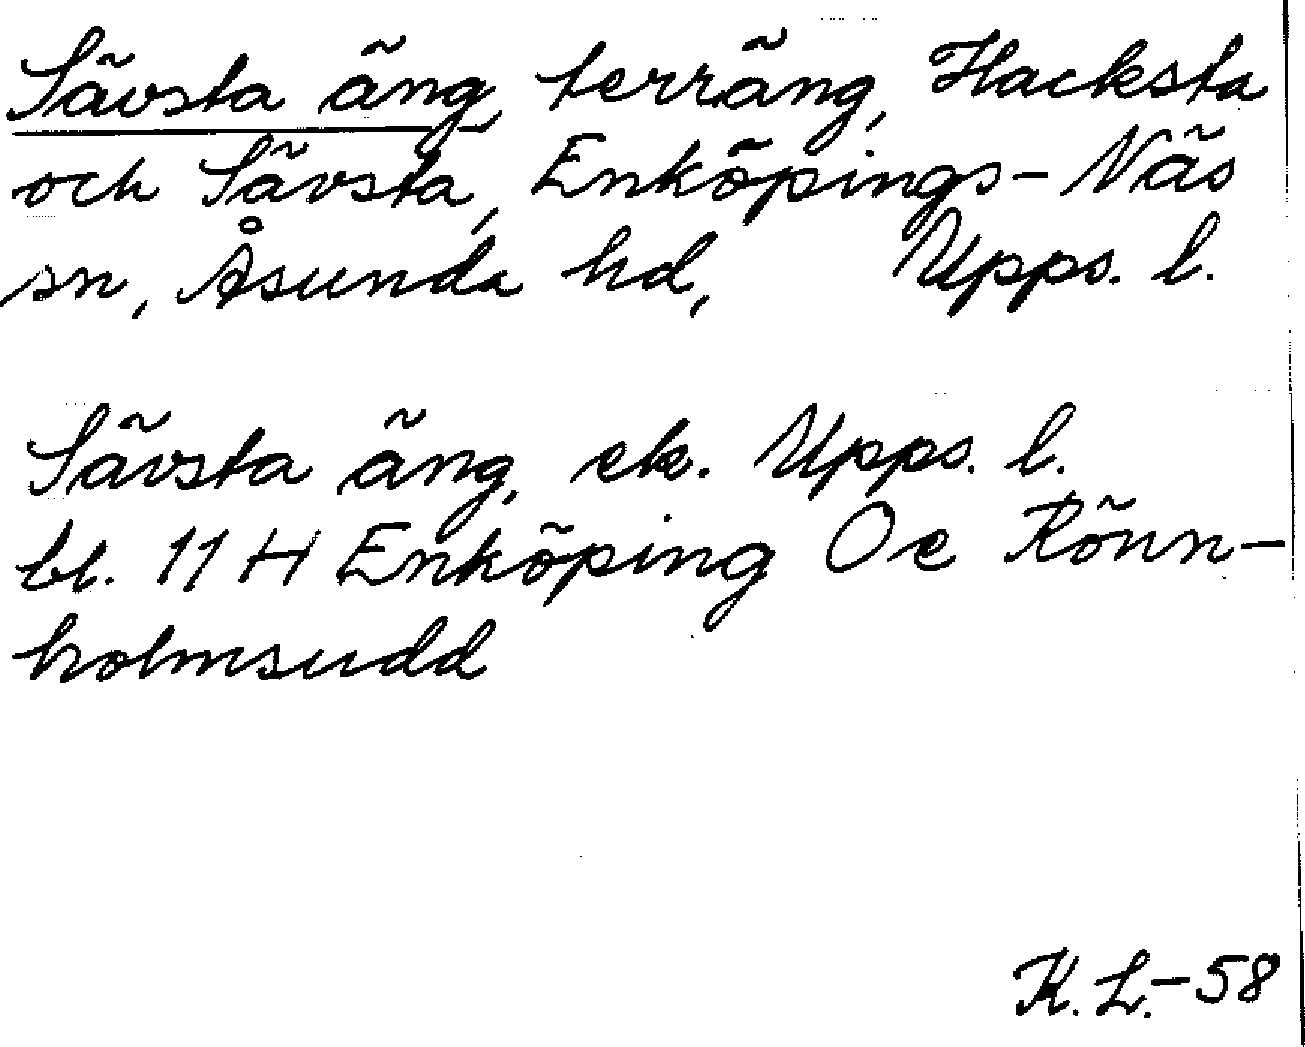 Sävsta äng, terräng, Hacksta
och Sävsta, Enköpings-Näs
sn, Åsunda hd, Upps. l.
Sävsta äng, ek. Upps. l.
bl. 11 H Enköping Oe Rönn-
holmsudd
K. L.-58